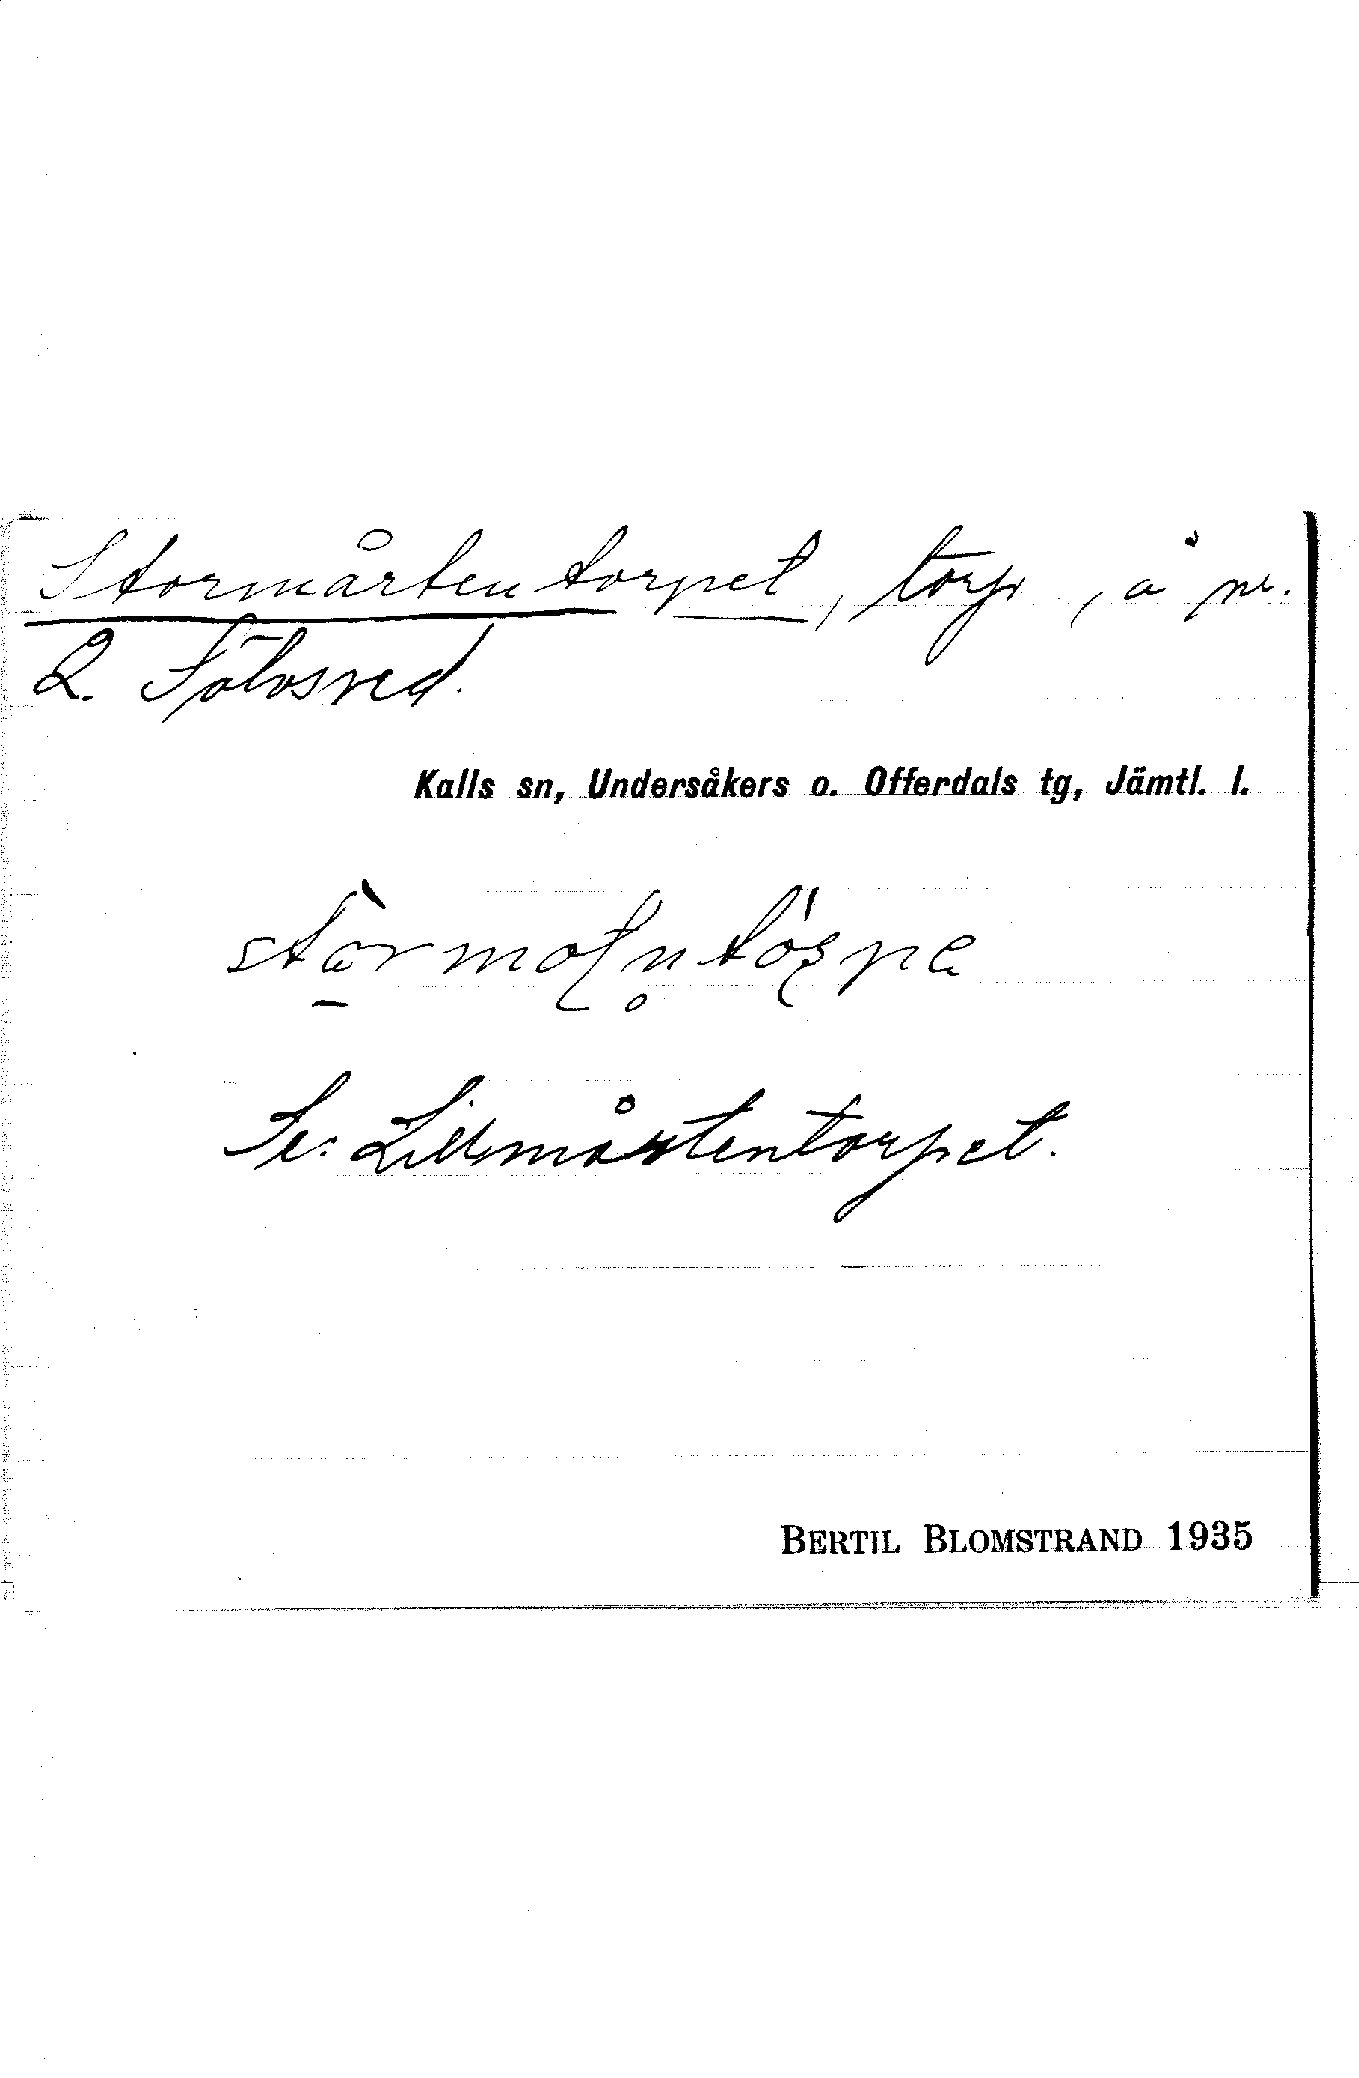 Stormårtentorpet, torp, å nr.
2
Kalls sn, Undersåkers o. Offerdals tg, Jämtl. l.
Se: Lillmårtentorpet.
BERTIL BLOMSTRAND 1935